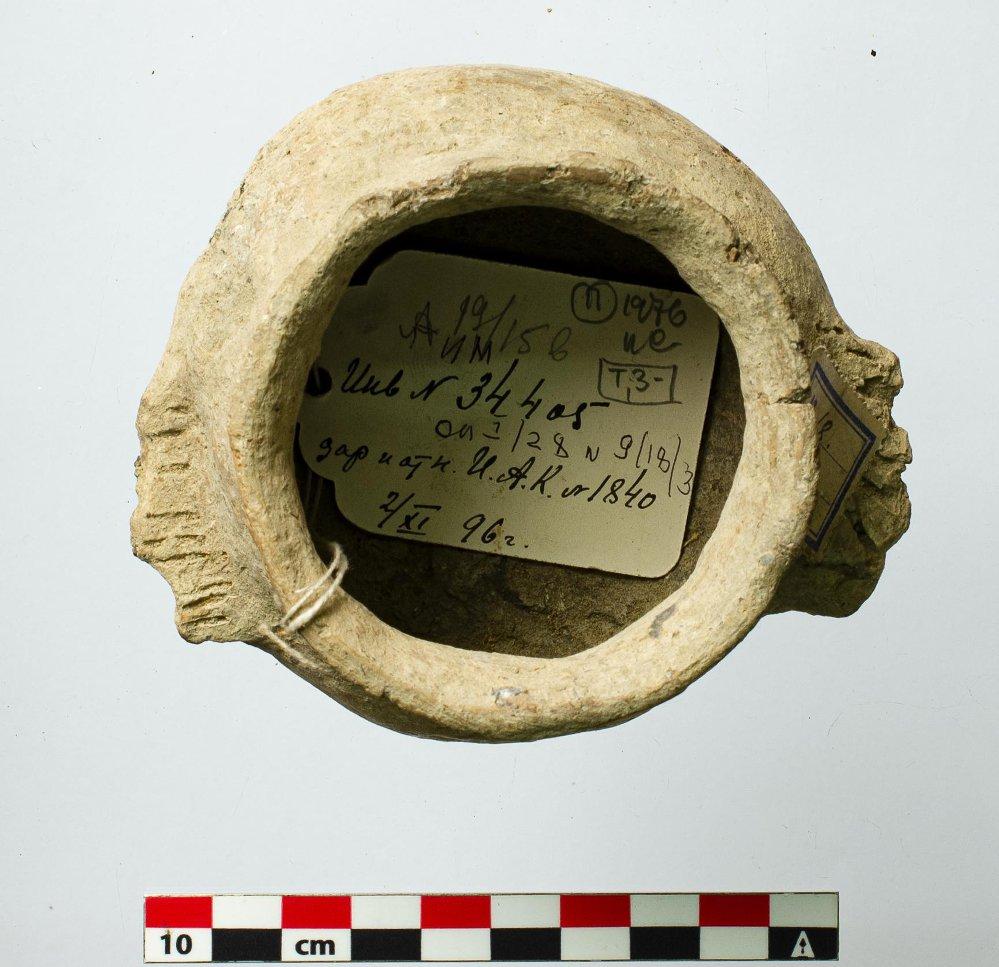 А 19/15 в
ИМ
П 1976
ие
Т,3-
Инв N 34405
оп I/28 N 9/18/3
зар и отн. И.А.К. № 1840
2/XI 96 г.
10 cm